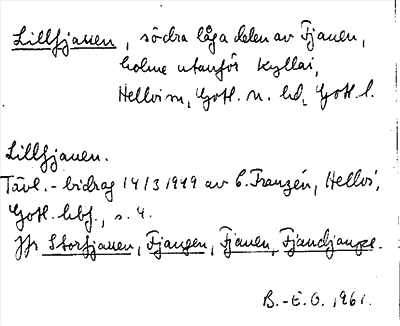 Lillfjauen, södra låga delen av Fjauen,
holme utanför Kyllai,
Hellvi sn, Gotl. n. hd, Gotl. l.
Lillfjauen.
Tävl.-bidrag 14/3 1949 av E. Franzén, Hellvi,
Gotl. hbf., s. 4.
Jfr Storfjauen, Fjaugen, Fjauen, Fjaudjaupe.
B.-E.O., 1961.